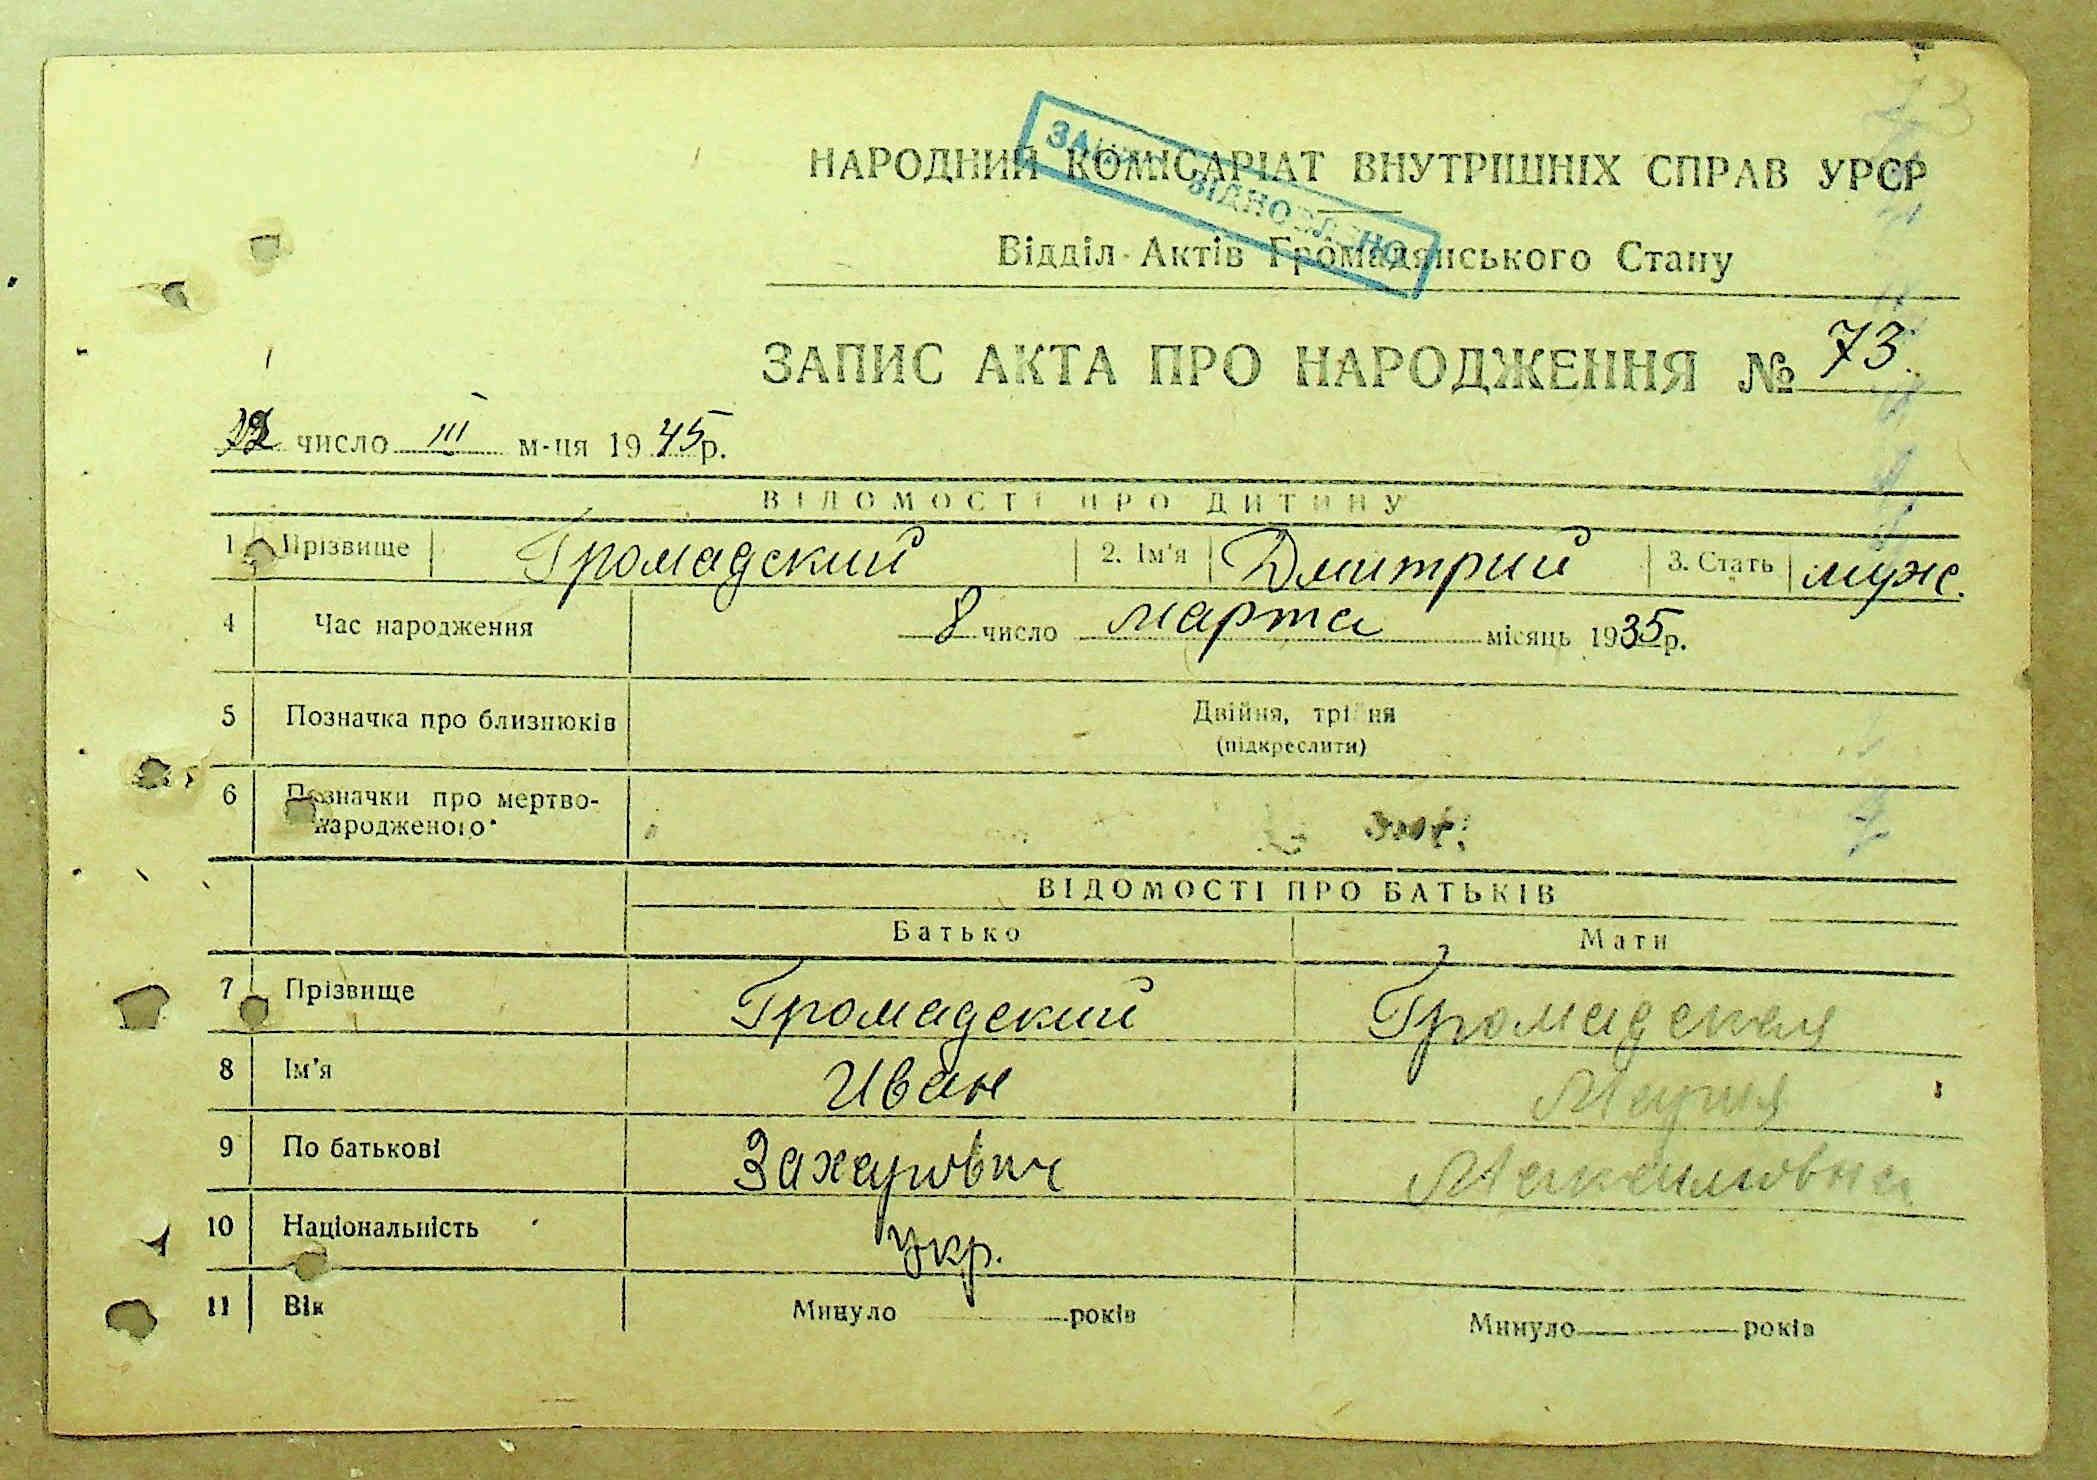 73
ЗАПИС ВІДНОВЛЕНО
НАРОДНИЙ КОМІСАРІАТ ВНУТРІШНІХ СПРАВ УРСР
Відділ Актів Громадянського Стану
ЗАПИС АКТА ПРО НАРОДЖЕННЯ № 73
число III м-ця 1945р.
ВІДОМОСТІ ПРО ДИТИНУ
1 Прізвище Громадский 2. Ім'я Дмитрий 3. Стать муж.
4 Час народження 8 число марта місяць 1935р.
5 Позначка про близнюків Двійня, трійня
(підкреслити)
6 Позначки про мертво-
народженого
ВІДОМОСТІ ПРО БАТЬКІВ
Батько Мати
7 Прізвище Громадский Громадская
8 Ім'я Иван Мария
9 По батькові Захарович
10 Національність укр.
11 Вік Минуло років Минуло років